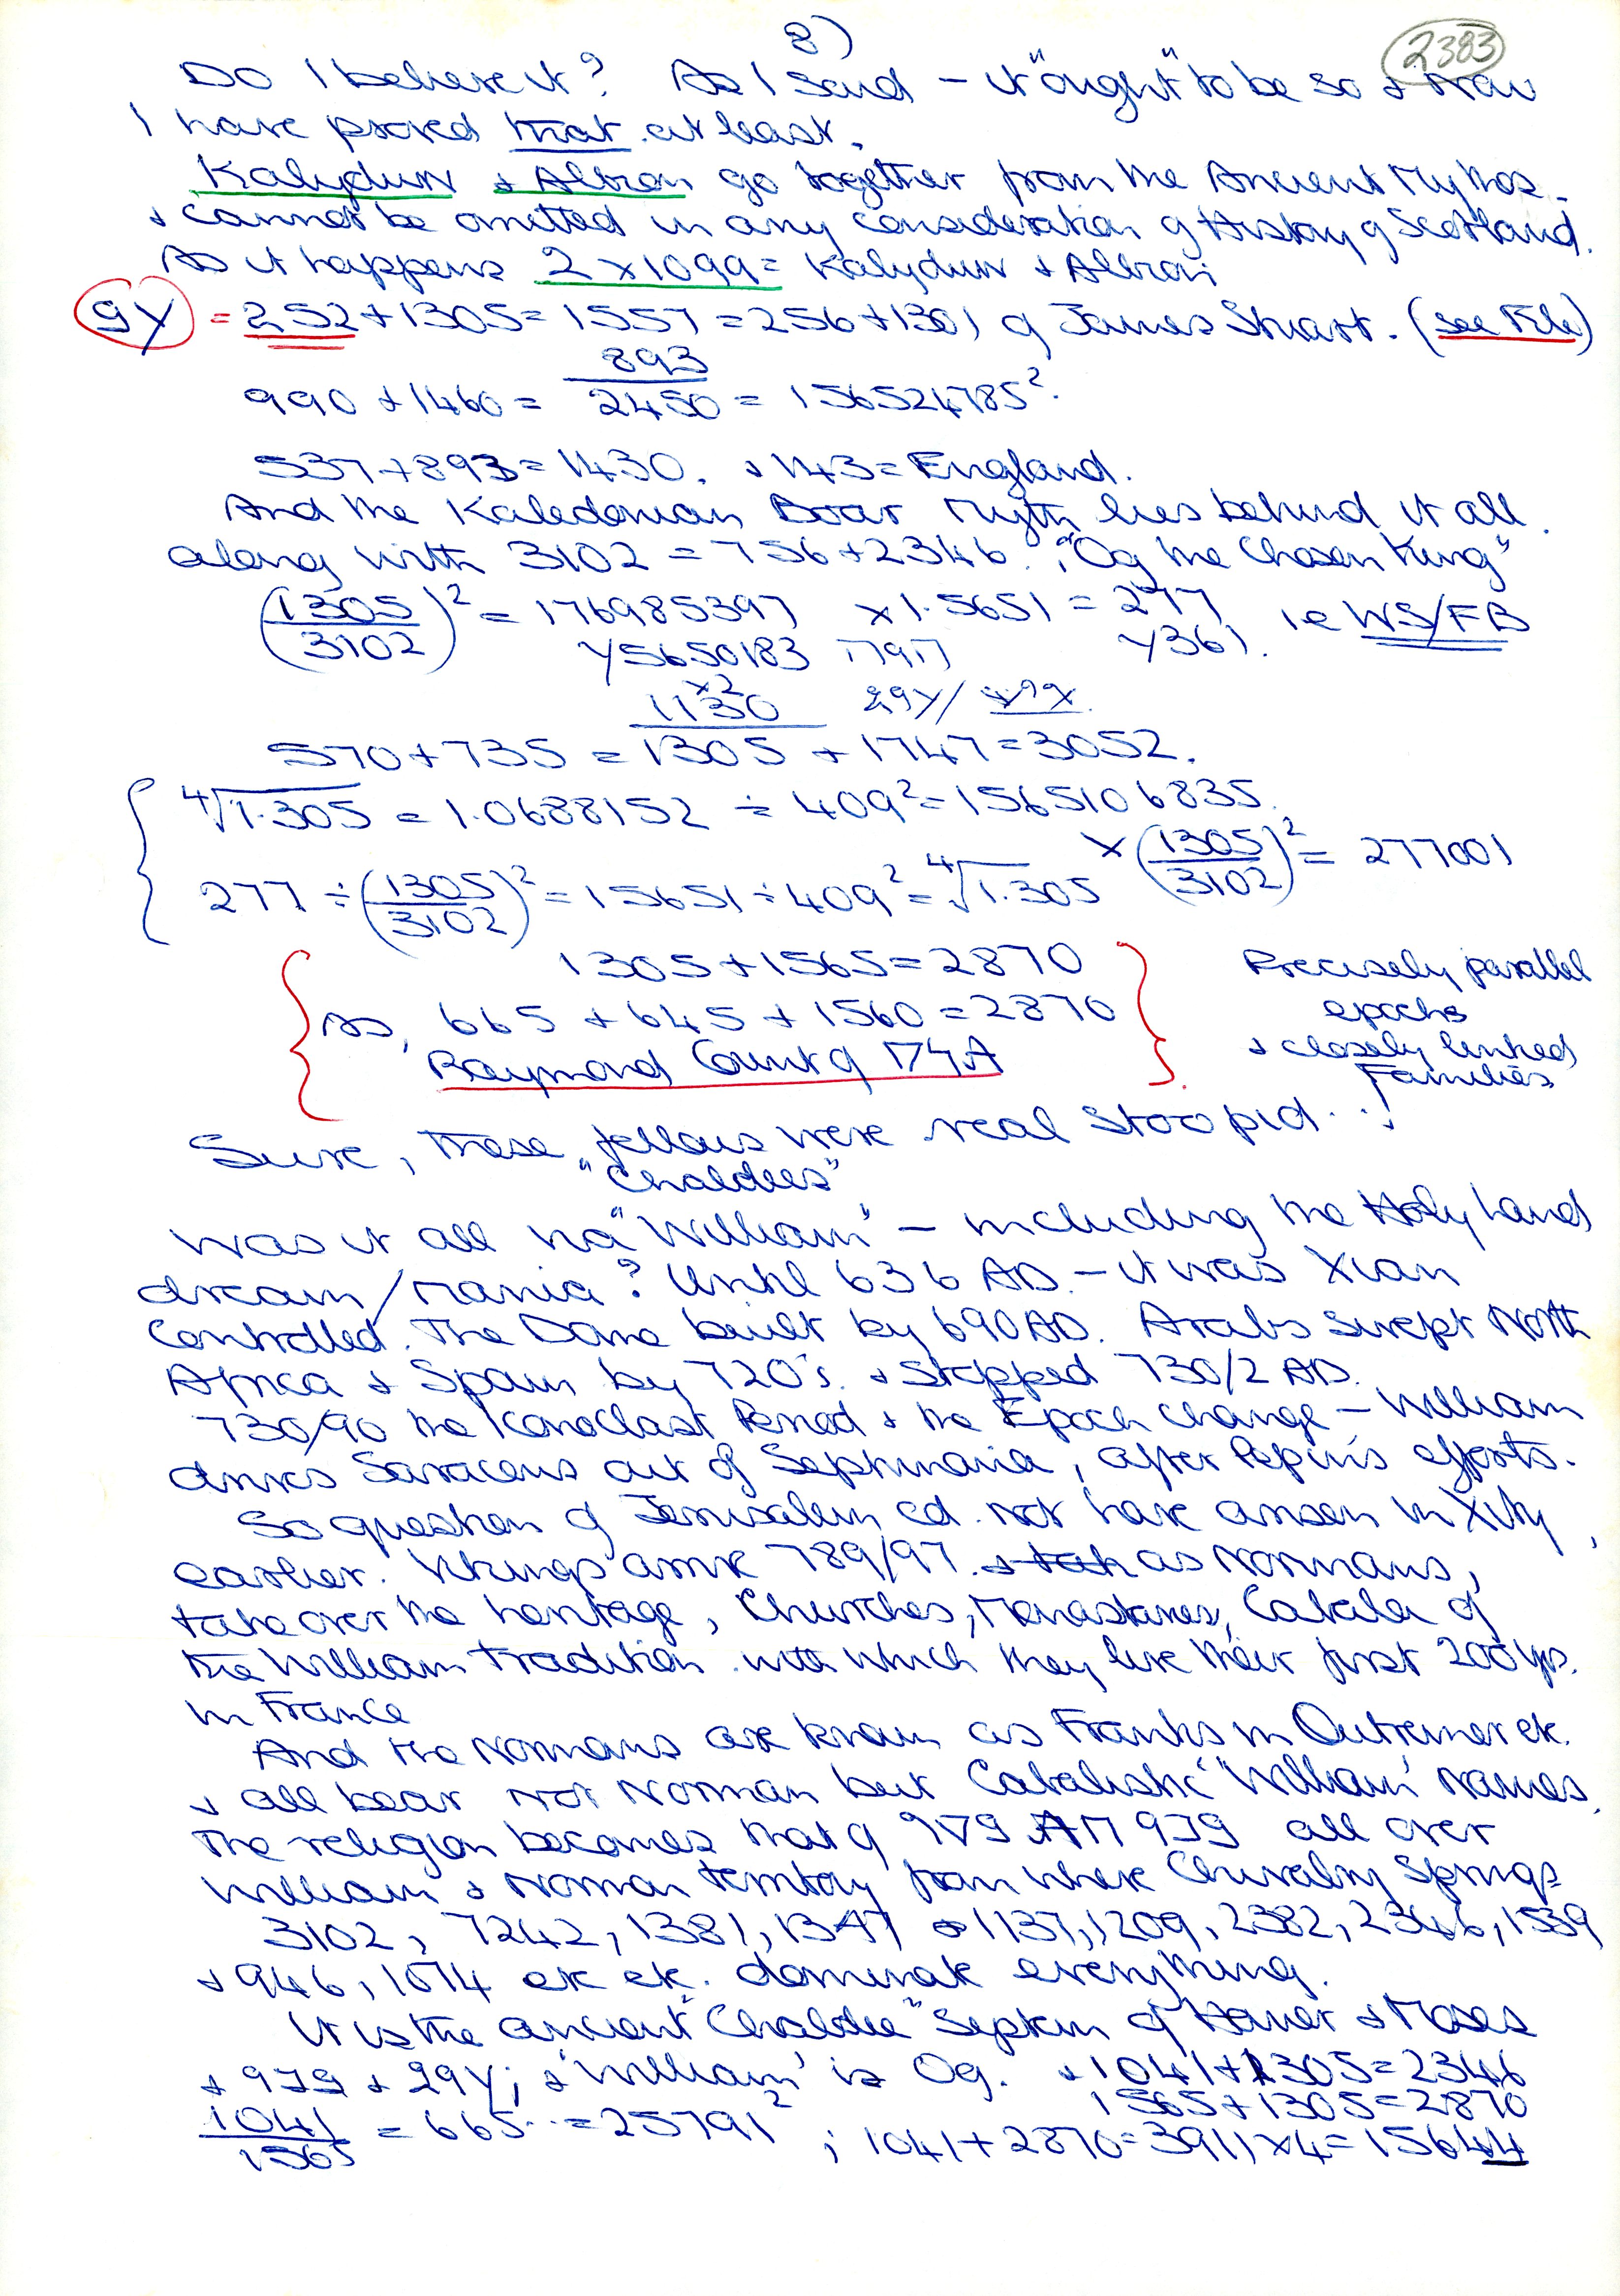 8)
2383
Do I believe it? As I said - it "ought" to be so & now
I have proved that at least.
Kalydun & Albion go together from the Ancient Mythos
& cannot be omitted in any consideration of History of Scotland.
As it happens 2 x 1099 = Kalydun & Albion
= 252 + 1305 = 1557 = 256 + 1301 of James Stuart. (see File)
990 + 1460 = 893/2450 = 156524785².
537 + 893 = 1430. & 143 = England.
And the Kaledonian Boar Myth lies behind it all.
along with 3102 = 756 + 2346. "Og the Chosen King"
(1305/3102)² = 176985397 x 1.5651 = 277 i.e WS/FB
y5650183 y361.
x2
1130
570 + 735 = 1305 + 1747 = 3052.
⁴√1.305 = 1.0688152 ÷ 409² = 1565106835.
x (1305/3102)² = 277001
277 ÷ (1305/3102)² = 15651 ÷ 409² = ⁴√1.305
1305 + 1565 = 2870
As, 665 + 645 + 1560 = 2870
Raymond Count of
Precisely parallel
epochs
& closely linked
Families
Sure, these fellows were real stoopid..!
"Chaldees"
Was it all via "William" - including the Holy Land
dream/mania? Until 636 AD. - it was Xian
controlled. The Dome built by 690 AD. Arabs swept North
Africa & Spain by 720's. & stopped 730/2 AD.
730/90 the Iconoclast Period & the Epoch change - William
drives Saracens out of Septimania, after Pepin's efforts.
So question of Jerusalem cd. not have arisen in Xity,
earlier. Vikings arrive 789/97. as Normans,
take over the heritage, Churches, Monasteries, Cabala of
the William tradition. with which they live their first 200 yrs.
in France
And the Normans are known as Franks in Outremer etc.
& all bear not Norman but Cabalistic 'William' names.
The religion becomes that of all over
William & Norman territory from where Chivalry springs
3102, 7242, 1381, 1347 & 1137, 1209, 2382, 2346, 1539
& 946, 1074 etc etc. dominate everything.
It is the ancient "Chaldee" System of Homer & Moses
& 'William' is Og. & 1041 + 1305 = 2346
1565 + 1305 = 2870
1041/1565 = 665.. = 25791² ; 1041 + 2870 = 3911 x 4 = 15644